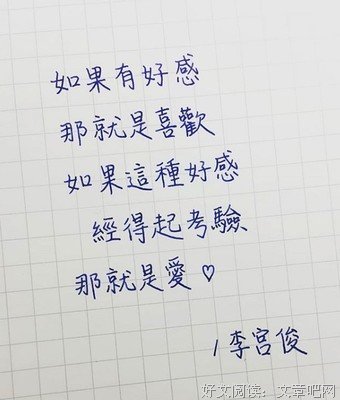 如果有好感
那就是喜歡
如果這種好感
經得起考驗
那就是愛♡
/李宮俊
好文阅读：文章吧网